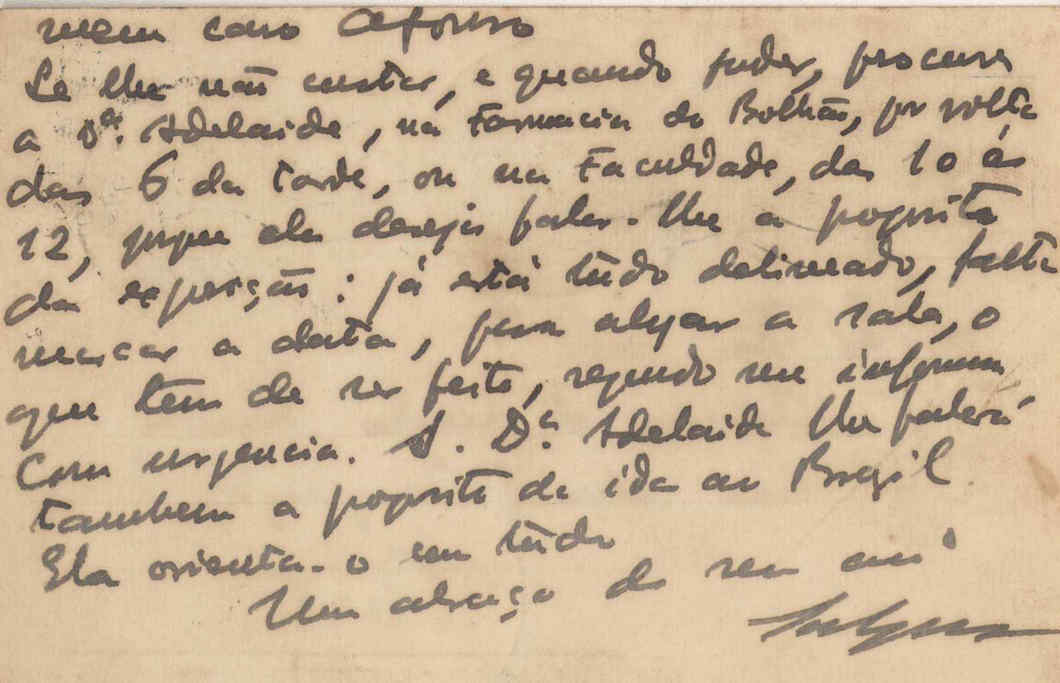 meu caro Afonso
Se lhe não custar, e quando puder, procure
a Dª. Adelaide, na Farmacia do Bolhão, por volta
das 6 da tarde, ou na Faculdade, das 10 ás
12, porque ela deseja falar-lhe a proposito
da exposição: já está tudo delineado, falta
marcar a data, para alugar a sala, o
que tem de ser feito, segundo me informa,
com urgencia. A S. Dª. Adelaide lhe falará
tambem a proposito da ida ao Brazil
Ela orienta-o em tudo
Um abraço do seu am^o